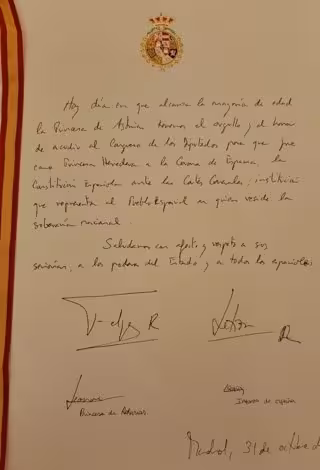 Hoy día en que alcanza la mayoría de edad
la Princesa de Asturias tenemos el orgullo y el honor
de acudir al Congreso de los Diputados para que jure
como Princesa Heredera a la Corona de España, la
Constitución Española ante las Cortes Generales; institución
que representa al Pueblo Español en quien reside la
soberanía nacional.
Saludamos con afecto y respeto a sus
señorías, a los poderes del Estado y a todos los españoles
Felipe R
Letizia R
Leonor
Princesa de Asturias
Sofía
Infanta de España
Madrid, 31 de octubre d